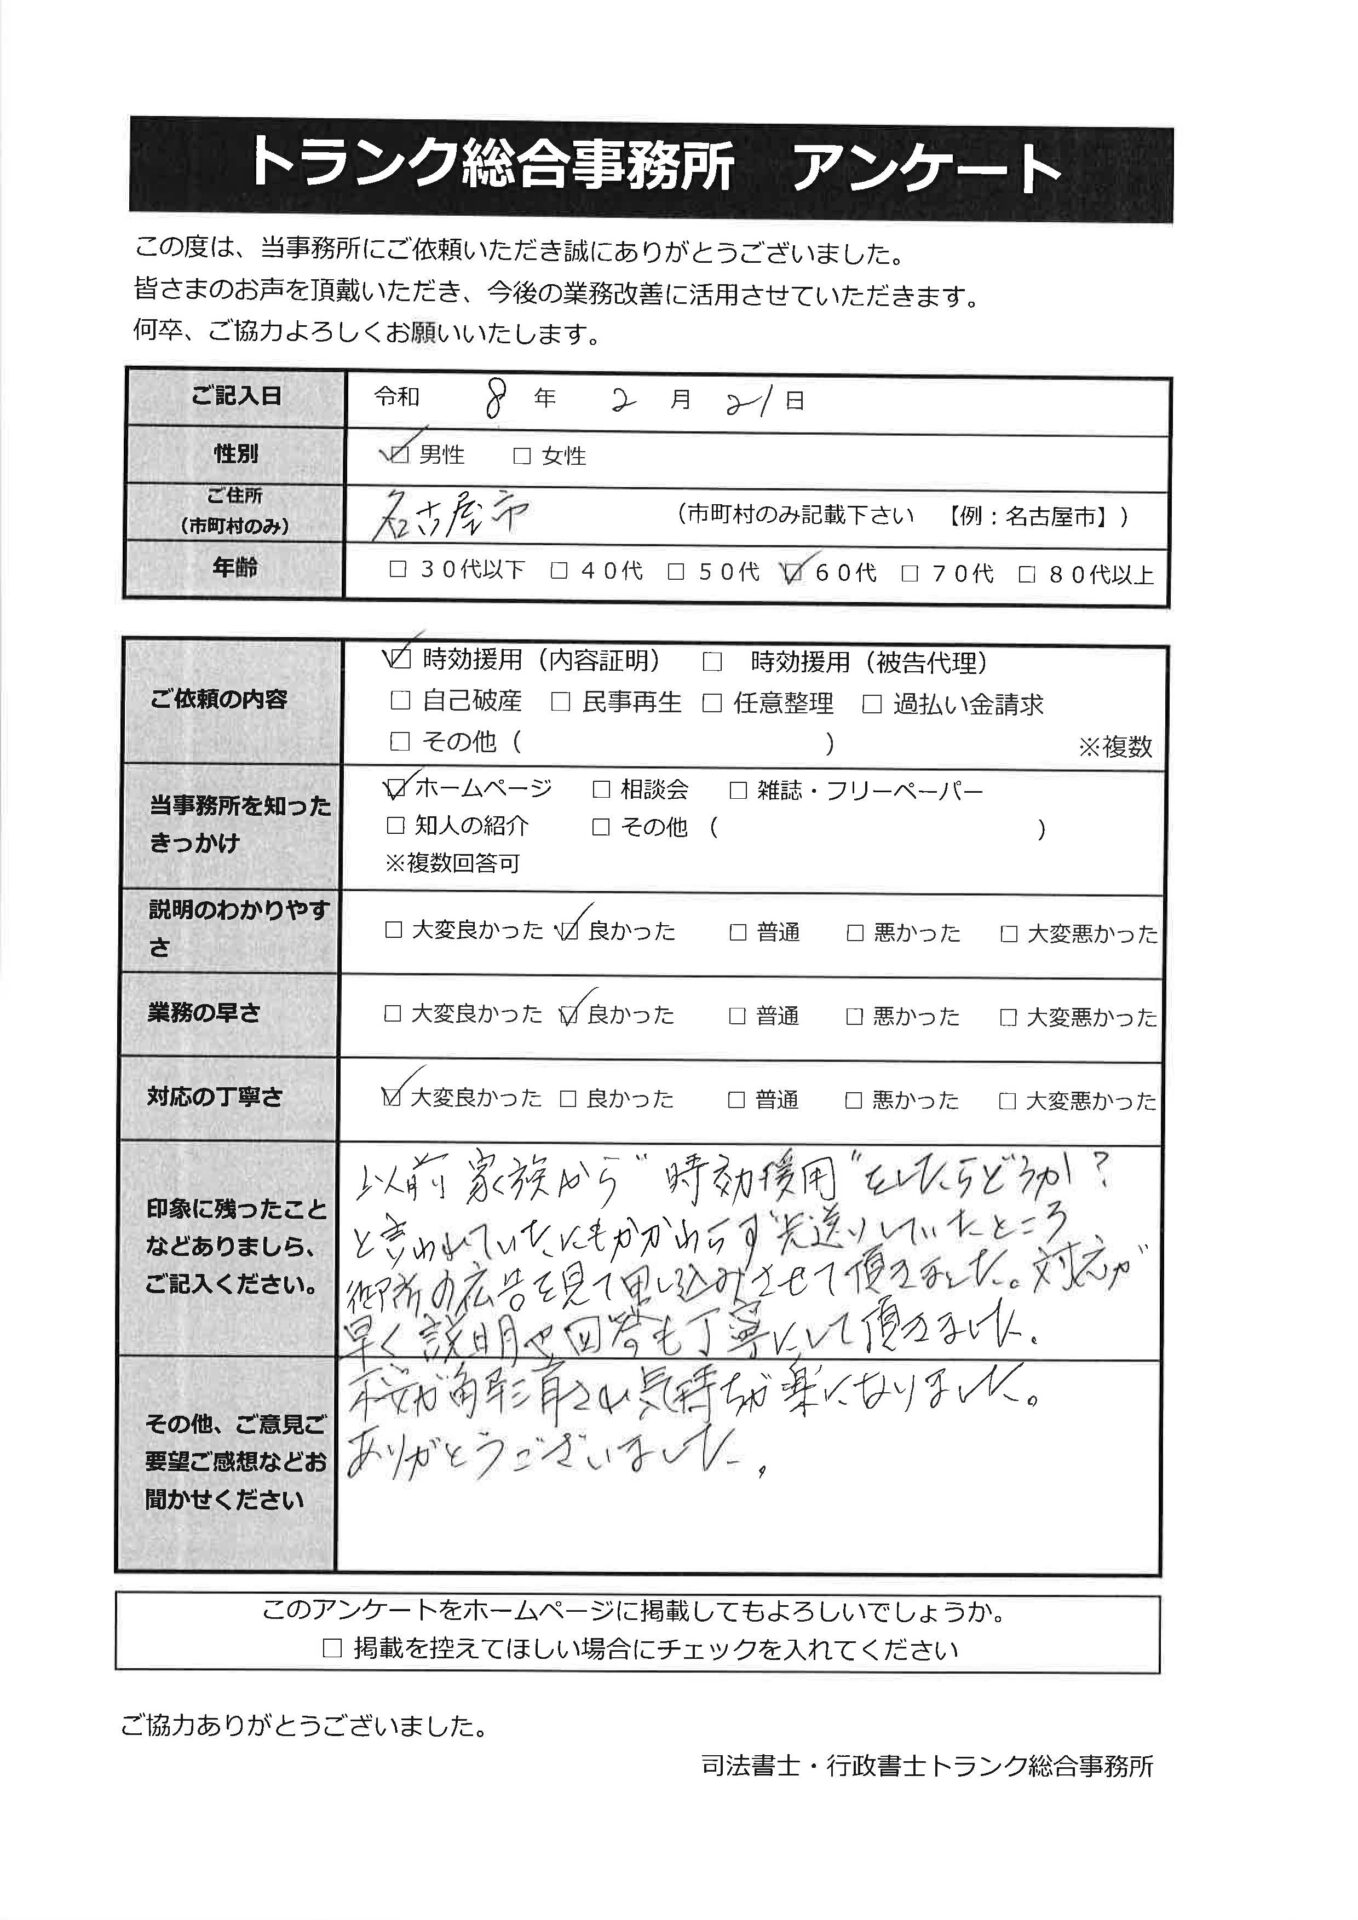 トランク総合事務所　アンケート
この度は、当事務所にご依頼いただき誠にありがとうございました。
皆さまのお声を頂戴いただき、今後の業務改善に活用させていただきます。
何卒、ご協力よろしくお願いいたします。
ご記入日 令和 8 年 2 月 21 日
性別 ☑ 男性 □ 女性
ご住所
（市町村のみ） 名古屋市 （市町村のみ記載下さい 【例：名古屋市】）
年齢 □ ３０代以下 □ ４０代 □ ５０代 ☑ ６０代 □ ７０代 □ ８０代以上
ご依頼の内容
☑ 時効援用（内容証明） □ 時効援用（被告代理）
□ 自己破産 □ 民事再生 □ 任意整理 □ 過払い金請求
□ その他（ ） ※複数
当事務所を知った
きっかけ
☑ ホームページ □ 相談会 □ 雑誌・フリーペーパー
□ 知人の紹介 □ その他（ ）
※複数回答可
説明のわかりやす
さ
□ 大変良かった ☑ 良かった □ 普通 □ 悪かった □ 大変悪かった
業務の早さ □ 大変良かった ☑ 良かった □ 普通 □ 悪かった □ 大変悪かった
対応の丁寧さ ☑ 大変良かった □ 良かった □ 普通 □ 悪かった □ 大変悪かった
印象に残ったこと
などありましら、
ご記入ください。
以前家族から"時効援用"をしたらどうか？
と言われていたにもかかわらず先送りしていたところ
御所の広告を見て申し込みさせて頂きました。対応が
早く説明や回答も丁寧にして頂きました。
その他、ご意見ご
要望ご感想などお
聞かせください
不安が解消され気持ちが楽になりました。
ありがとうございました。
このアンケートをホームページに掲載してもよろしいでしょうか。
□ 掲載を控えてほしい場合にチェックを入れてください
ご協力ありがとうございました。
司法書士・行政書士トランク総合事務所